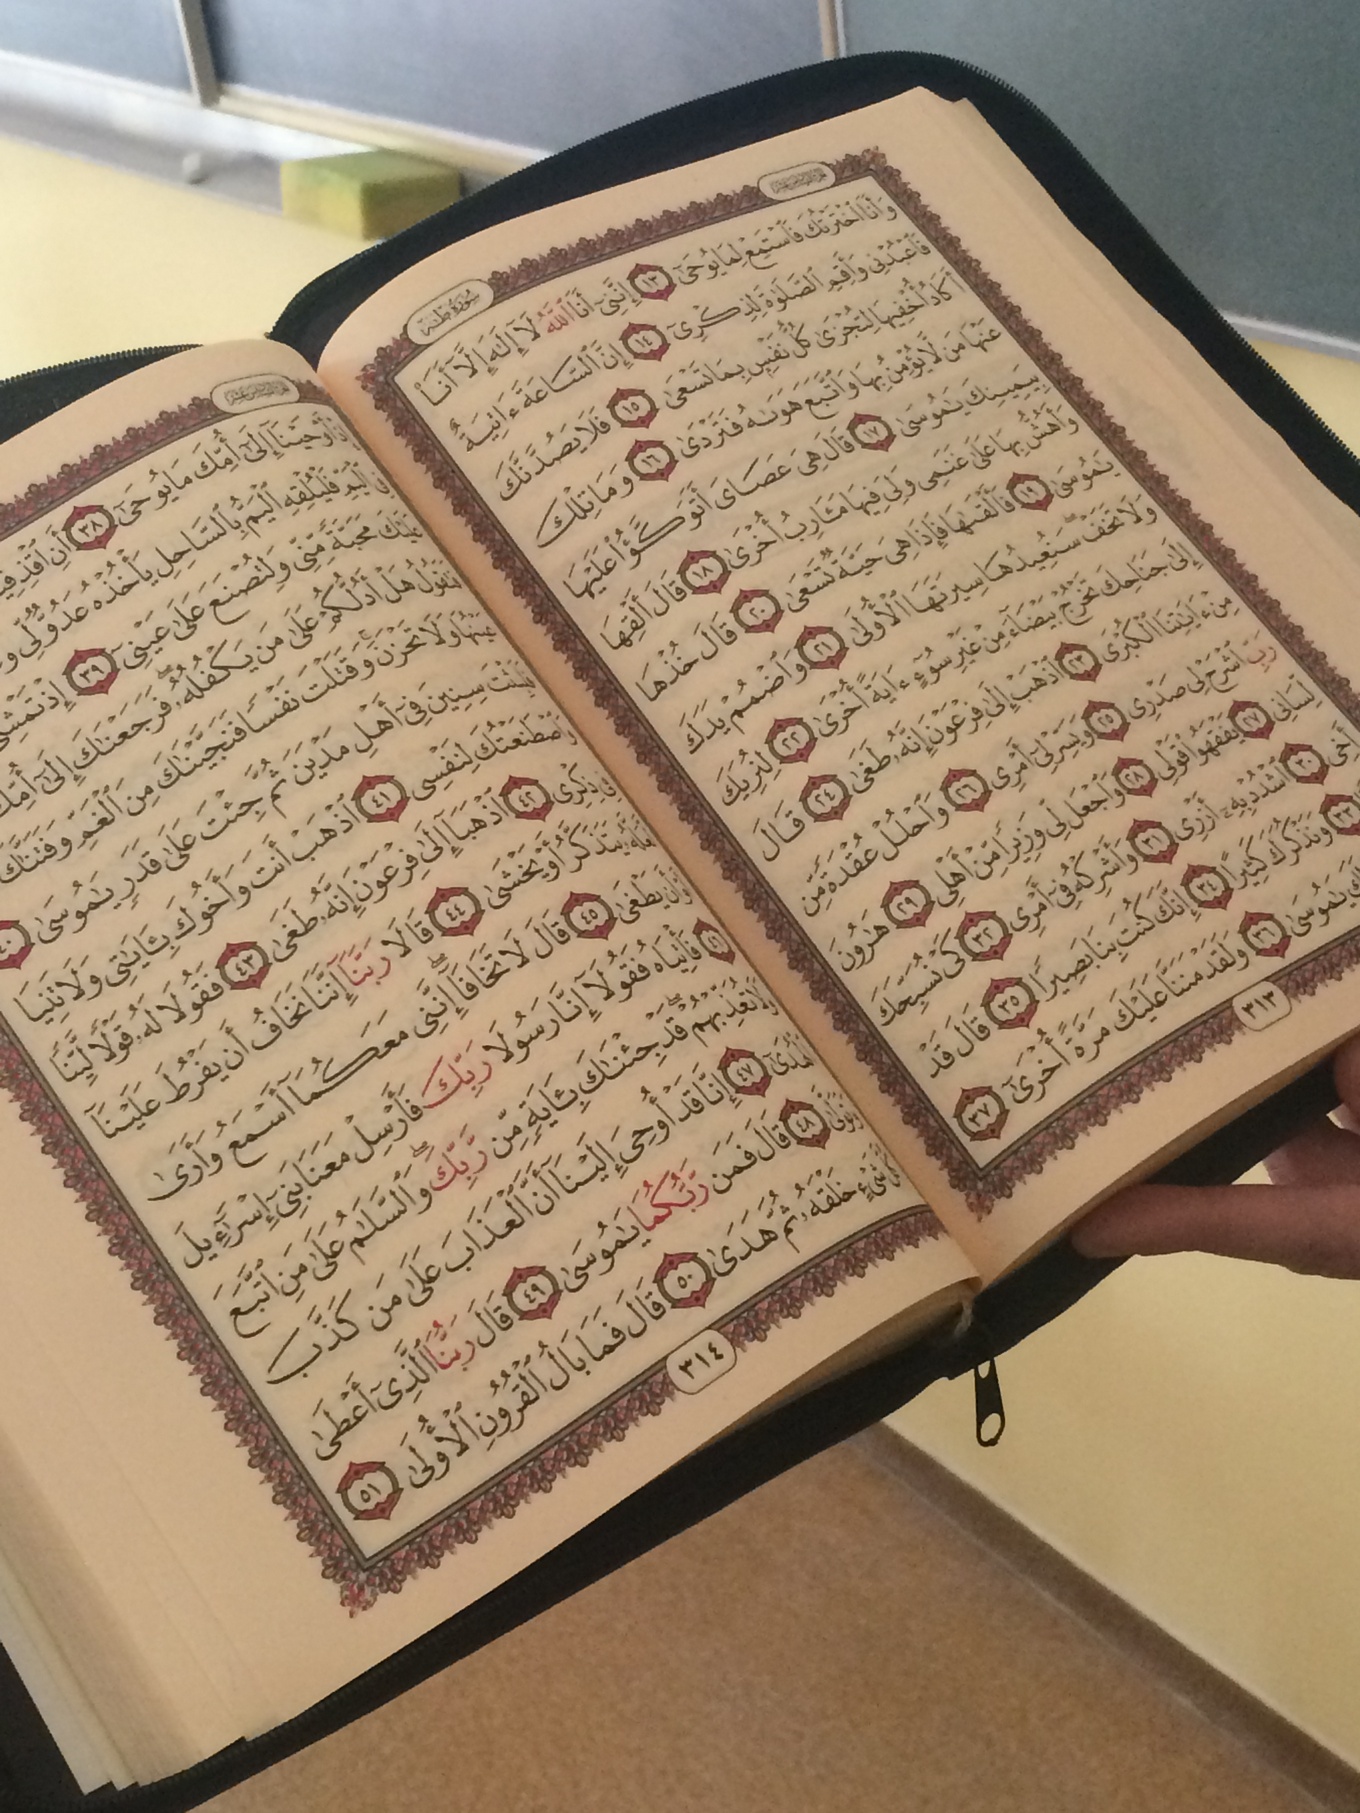 سُورَةُ طه
وَأَنَا ٱخْتَرْتُكَ فَٱسْتَمِعْ لِمَا يُوحَىٰٓ ١٣ إِنَّنِىٓ أَنَا ٱللَّهُ لَآ إِلَٰهَ إِلَّآ أَنَا۠
فَٱعْبُدْنِى وَأَقِمِ ٱلصَّلَوٰةَ لِذِكْرِىٓ ١٤ إِنَّ ٱلسَّاعَةَ ءَاتِيَةٌ
أَكَادُ أُخْفِيهَا لِتُجْزَىٰ كُلُّ نَفْسٍۭ بِمَا تَسْعَىٰ ١٥ فَلَا يَصُدَّنَّكَ
عَنْهَا مَن لَّا يُؤْمِنُ بِهَا وَٱتَّبَعَ هَوَىٰهُ فَتَرْدَىٰ ١٦ وَمَا تِلْكَ
بِيَمِينِكَ يَٰمُوسَىٰ ١٧ قَالَ هِىَ عَصَاىَ أَتَوَكَّؤُا۟ عَلَيْهَا
وَأَهُشُّ بِهَا عَلَىٰ غَنَمِى وَلِىَ فِيهَا مَـَٔارِبُ أُخْرَىٰ ١٨ قَالَ أَلْقِهَا
يَٰمُوسَىٰ ١٩ فَأَلْقَىٰهَا فَإِذَا هِىَ حَيَّةٌ تَسْعَىٰ ٢٠ قَالَ خُذْهَا
وَلَا تَخَفْ سَنُعِيدُهَا سِيرَتَهَا ٱلْأُولَىٰ ٢١ وَٱضْمُمْ يَدَكَ
إِلَىٰ جَنَاحِكَ تَخْرُجْ بَيْضَآءَ مِنْ غَيْرِ سُوٓءٍ ءَايَةً أُخْرَىٰ ٢٢ لِنُرِيَكَ
مِنْ ءَايَٰتِنَا ٱلْكُبْرَى ٢٣ ٱذْهَبْ إِلَىٰ فِرْعَوْنَ إِنَّهُۥ طَغَىٰ ٢٤ قَالَ
رَبِّ ٱشْرَحْ لِى صَدْرِى ٢٥ وَيَسِّرْ لِىٓ أَمْرِى ٢٦ وَٱحْلُلْ عُقْدَةً مِّن
لِّسَانِى ٢٧ يَفْقَهُوا۟ قَوْلِى ٢٨ وَٱجْعَل لِّى وَزِيرًا مِّنْ أَهْلِى ٢٩ هَٰرُونَ
أَخِى ٣٠ ٱشْدُدْ بِهِۦٓ أَزْرِى ٣١ وَأَشْرِكْهُ فِىٓ أَمْرِى ٣٢ كَىْ نُسَبِّحَكَ
٣٣ وَنَذْكُرَكَ كَثِيرًا ٣٤ إِنَّكَ كُنتَ بِنَا بَصِيرًا ٣٥ قَالَ قَدْ
يَٰمُوسَىٰ ٣٦ وَلَقَدْ مَنَنَّا عَلَيْكَ مَرَّةً أُخْرَىٰٓ ٣٧
٣١٣
أَوْحَيْنَآ إِلَىٰٓ أُمِّكَ مَا يُوحَىٰٓ ٣٨ أَنِ ٱقْذِفِيهِ
ٱلْيَمِّ فَلْيُلْقِهِ ٱلْيَمُّ بِٱلسَّاحِلِ يَأْخُذْهُ عَدُوٌّ لِّى
مَحَبَّةً مِّنِّى وَلِتُصْنَعَ عَلَىٰ عَيْنِىٓ ٣٩ إِذْ تَمْشِىٓ
هَلْ أَدُلُّكُمْ عَلَىٰ مَن يَكْفُلُهُۥ فَرَجَعْنَٰكَ إِلَىٰٓ أُمِّكَ
وَلَا تَحْزَنَ وَقَتَلْتَ نَفْسًا فَنَجَّيْنَٰكَ مِنَ ٱلْغَمِّ وَفَتَنَّٰكَ
سِنِينَ فِىٓ أَهْلِ مَدْيَنَ ثُمَّ جِئْتَ عَلَىٰ قَدَرٍ يَٰمُوسَىٰ ٤٠
وَٱصْطَنَعْتُكَ لِنَفْسِى ٤١ ٱذْهَبْ أَنتَ وَأَخُوكَ بِـَٔايَٰتِى وَلَا تَنِيَا
فِى ذِكْرِى ٤٢ ٱذْهَبَآ إِلَىٰ فِرْعَوْنَ إِنَّهُۥ طَغَىٰ ٤٣ فَقُولَا لَهُۥ قَوْلًا لَّيِّنًا
يَتَذَكَّرُ أَوْ يَخْشَىٰ ٤٤ قَالَا رَبَّنَآ إِنَّنَا نَخَافُ أَن يَفْرُطَ عَلَيْنَآ
أَن يَطْغَىٰ ٤٥ قَالَ لَا تَخَافَآ إِنَّنِى مَعَكُمَآ أَسْمَعُ وَأَرَىٰ
٤٦ فَأْتِيَاهُ فَقُولَآ إِنَّا رَسُولَا رَبِّكَ فَأَرْسِلْ مَعَنَا بَنِىٓ إِسْرَٰٓءِيلَ
وَلَا تُعَذِّبْهُمْ قَدْ جِئْنَٰكَ بِـَٔايَةٍ مِّن رَّبِّكَ وَٱلسَّلَٰمُ عَلَىٰ مَنِ ٱتَّبَعَ
ٱلْهُدَىٰٓ ٤٧ إِنَّا قَدْ أُوحِىَ إِلَيْنَآ أَنَّ ٱلْعَذَابَ عَلَىٰ مَن كَذَّبَ
وَتَوَلَّىٰ ٤٨ قَالَ فَمَن رَّبُّكُمَا يَٰمُوسَىٰ ٤٩ قَالَ رَبُّنَا ٱلَّذِىٓ أَعْطَىٰ
كُلَّ شَىْءٍ خَلْقَهُۥ ثُمَّ هَدَىٰ ٥٠ قَالَ فَمَا بَالُ ٱلْقُرُونِ ٱلْأُولَىٰ ٥١
٣١٤